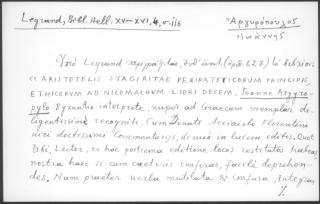 Legrand, Bibl. Hell. XV-XVI, 4, σ. 116
Ἀργυρόπουλος
Ἰωάννης
Ὑπὸ Legrand περιγράφεται, ἐνθ' ἀνωτ. (ἀρ. 627) τὸ βιβλίον:
« ARISTOTELIS STAGIRITAE PERIPATETICORUM PRINCIPIS,
ETHICORUM AD NICOMACHUM LIBRI DECEM. Joanne Argyro-
pylo Byzantio interprete, nuper ad Graecum exemplar di-
ligentissimè recogniti. Cum Donati Acciaioli Florentini
viri doctissimi Commentariis, denuò in lucem editis. Quot
tibi, Lector, ex hac postrema editione locos restitutos habeas,
nostra haec si cum caeteris conferas, facilè deprehen-
des. Nam praeter verba mutilata & confusa, integram